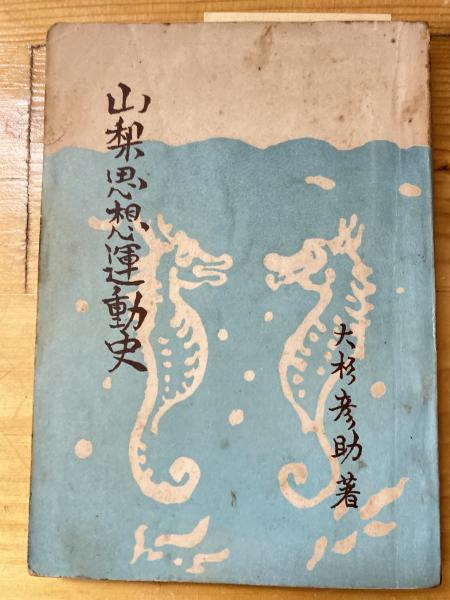 山梨思想運動史
大杉彦助著